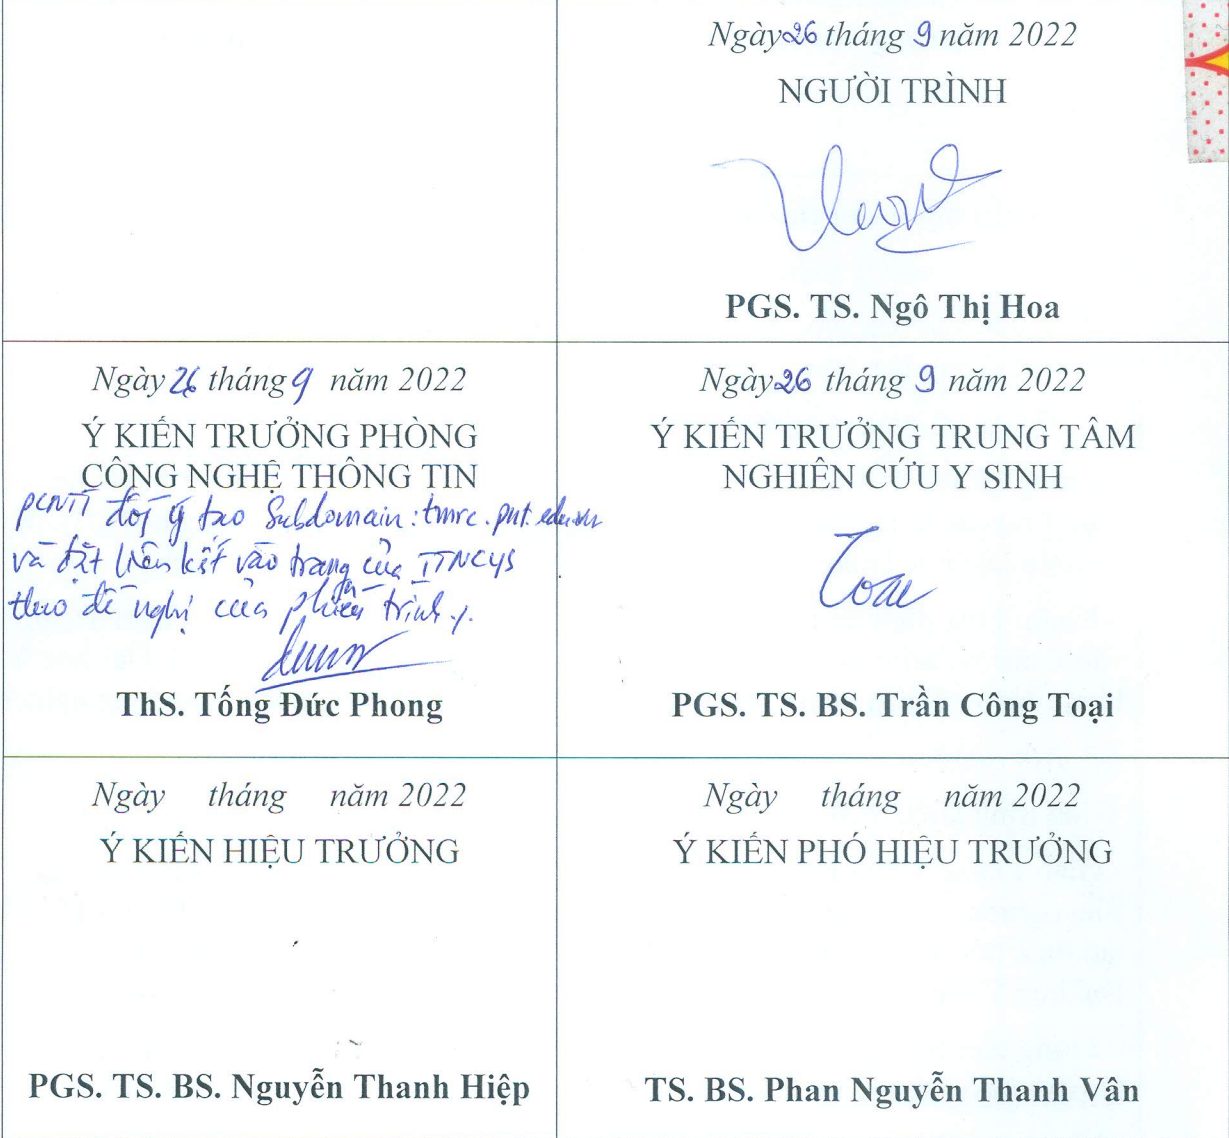 Ngày 26 tháng 9 năm 2022
NGƯỜI TRÌNH
PGS. TS. Ngô Thị Hoa
Ngày 26 tháng 9 năm 2022
Ý KIẾN TRƯỞNG PHÒNG
CÔNG NGHỆ THÔNG TIN
PCNTT đồng ý tạo Subdomain: tmrc.pnt.edu.vn
và đặt liên kết vào trang của TTNCYS
theo đề nghị của phiếu trình
ThS. Tống Đức Phong
Ngày 26 tháng 9 năm 2022
Ý KIẾN TRƯỞNG TRUNG TÂM
NGHIÊN CỨU Y SINH
PGS. TS. BS. Trần Công Toại
Ngày tháng năm 2022
Ý KIẾN HIỆU TRƯỞNG
PGS. TS. BS. Nguyễn Thanh Hiệp
Ngày tháng năm 2022
Ý KIẾN PHÓ HIỆU TRƯỞNG
TS. BS. Phan Nguyễn Thanh Vân